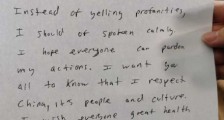 Instead of yelling profanities,
I should of spoken calmly
I hope everyone can pardon
my actions. I want ya
all to know that I respect
China, its people and culture.
I wish everyone great health